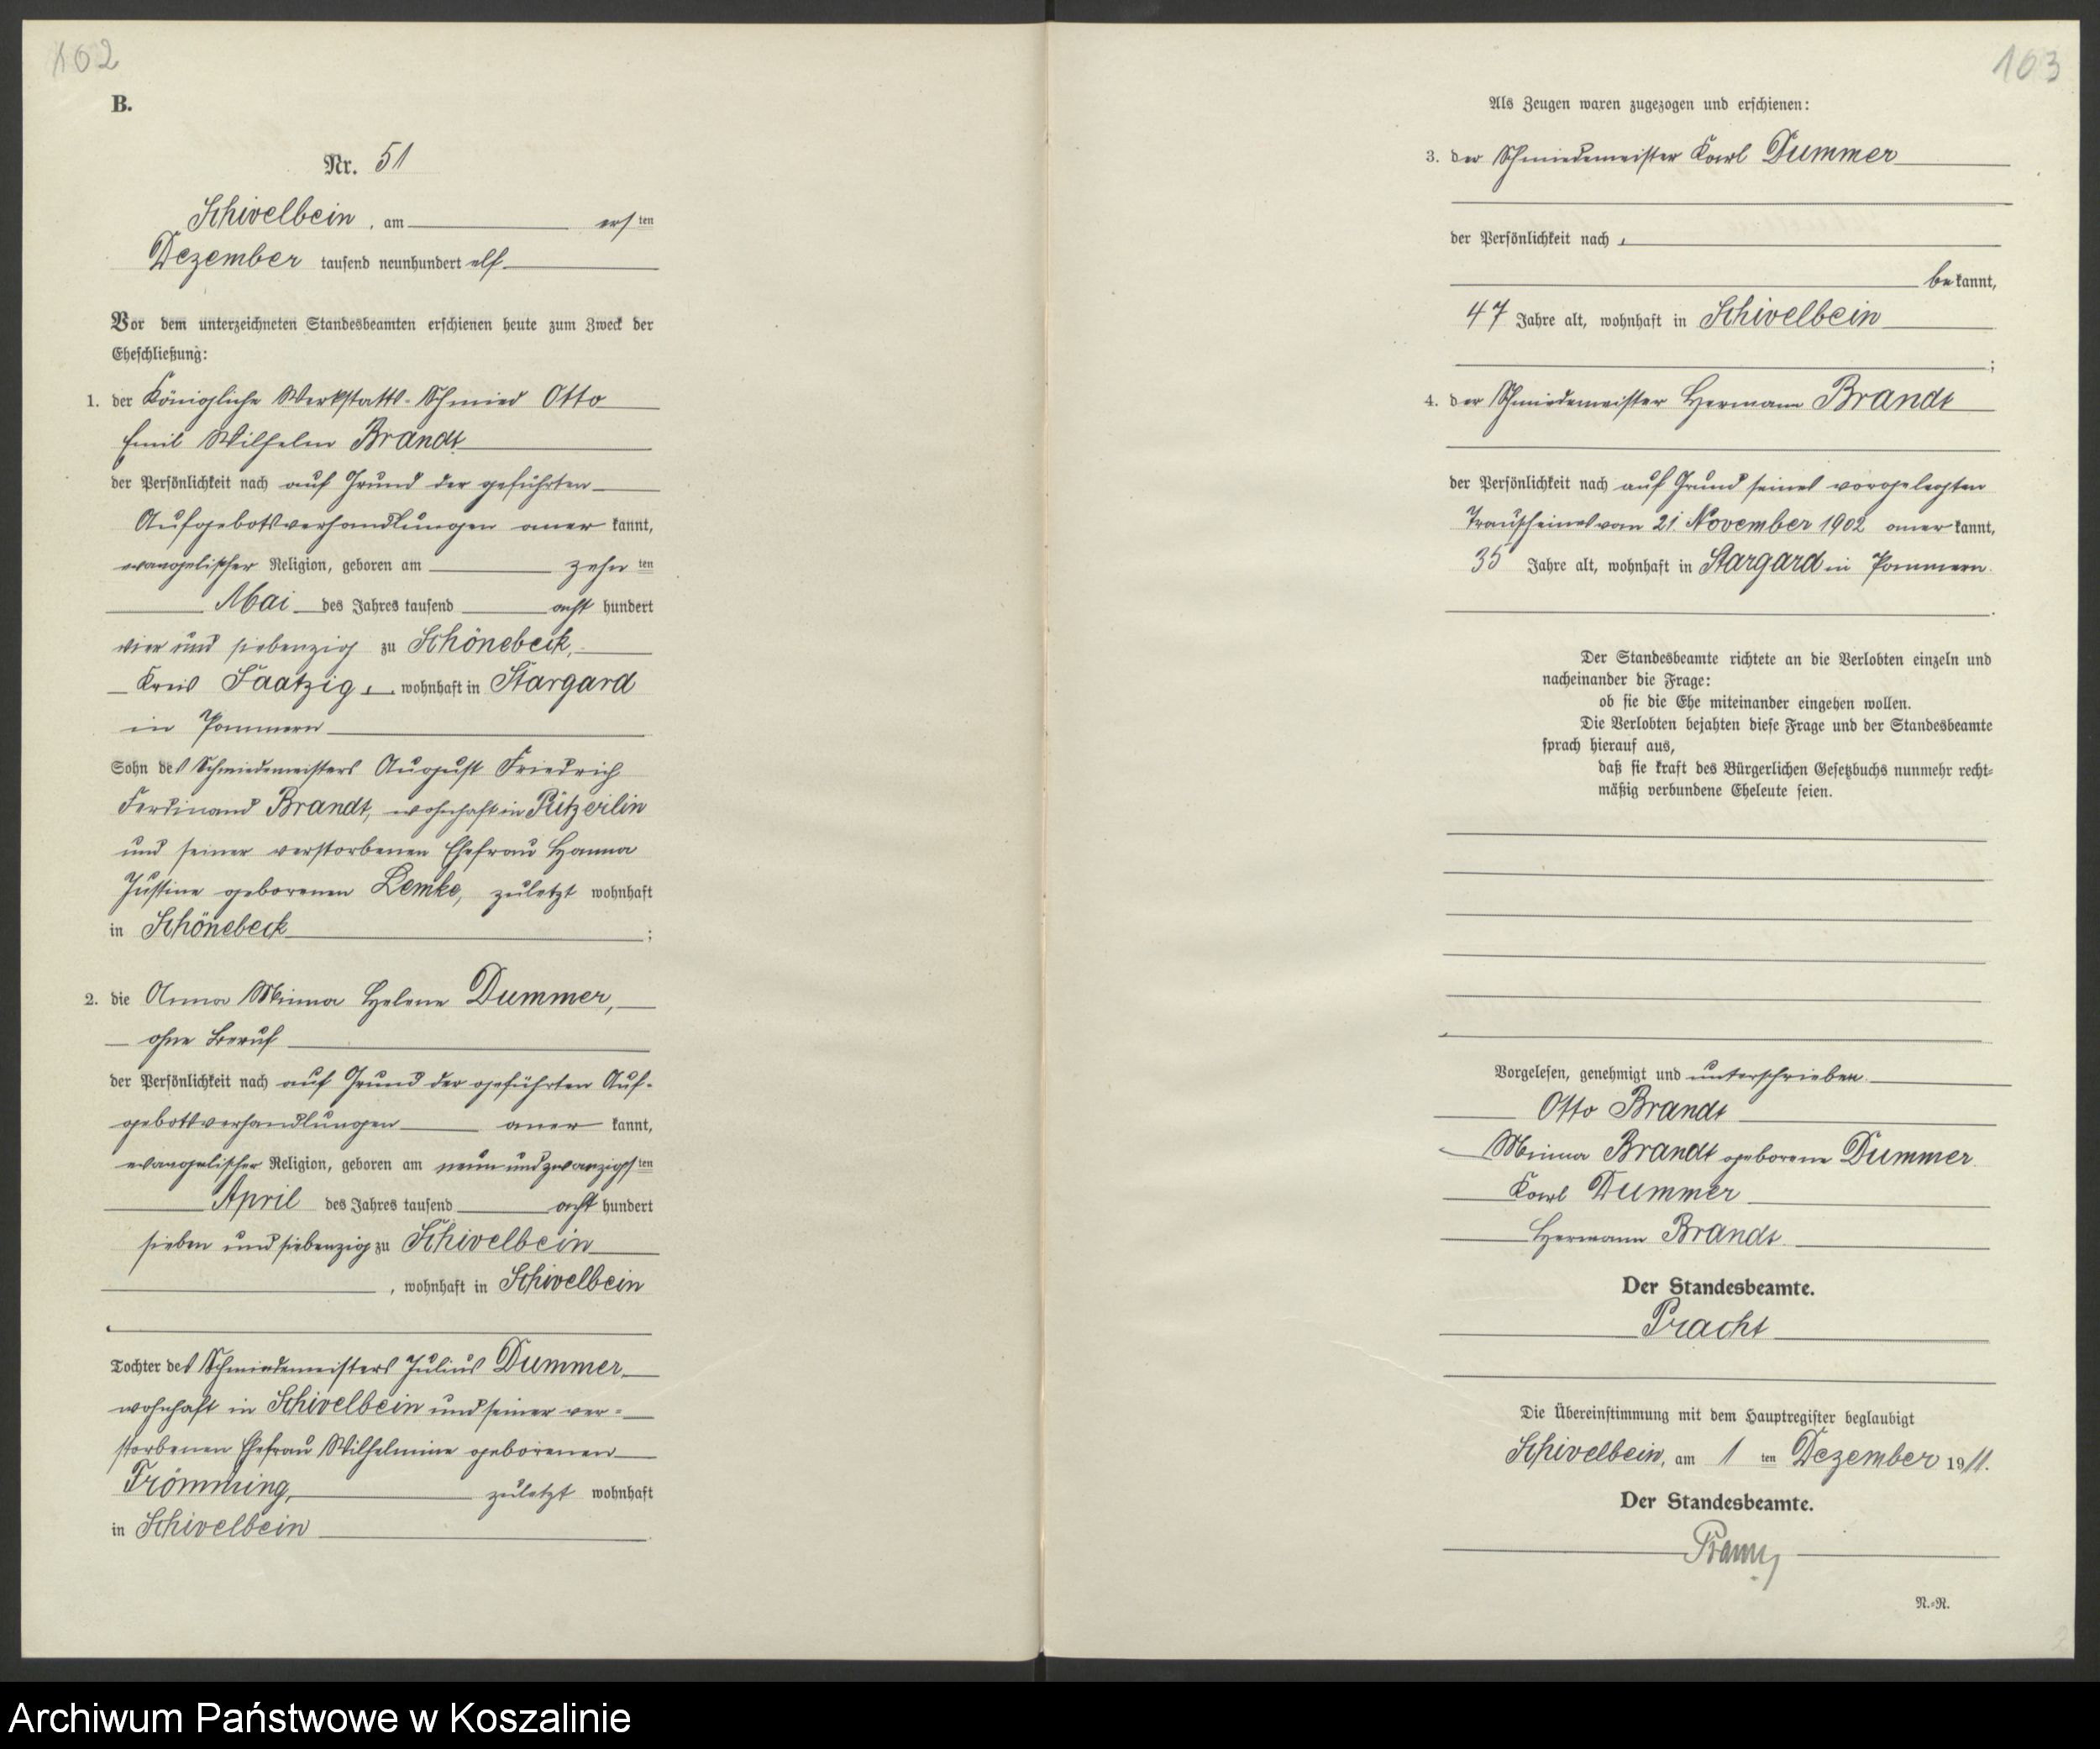 102
B.
Nr. 51
Schivelbein, am ersten
Dezember tausend neunhundert elf
Vor dem unterzeichneten Standesbeamten erschienen heute zum Zweck der
Eheschließung:
1. der Königliche Werkstatts-Schmied Otto
Emil Wilhelm Brandt
der Persönlichkeit nach auf Grund der geführten
Aufgebotsverhandlungen aner kannt,
evangelischer Religion, geboren am zehn ten
Mai des Jahres tausend acht hundert
vier und siebenzig zu Schönebeck,
Kreis Saatzig, wohnhaft in Stargard
in Pommern
Sohn des Schmiedemeisters August Friedrich
Ferdinand Brandt, wohnhaft in Pützerlin
und seiner verstorbenen Ehefrau Hanna
Justine geborenen Lemke, zuletzt wohnhaft
in Schönebeck ;
2. die Anna Minna Helene Dummer,
ohne Beruf
der Persönlichkeit nach auf Grund der geführten Auf-
gebotsverhandlungen aner kannt,
evangelischer Religion, geboren am neun und zwanzigsten
April des Jahres tausend acht hundert
sieben und siebenzig zu Schivelbein
, wohnhaft in Schivelbein
Tochter des Schmiedemeisters Julius Dummer,
wohnhaft in Schivelbein und seiner ver-
storbenen Ehefrau Wilhelmine geborenen
Frömming, zuletzt wohnhaft
in Schivelbein .
103
Als Zeugen waren zugezogen und erschienen:
3. der Schmiedemeister Karl Dummer
der Persönlichkeit nach ,
be kannt,
47 Jahre alt, wohnhaft in Schivelbein
;
4. der Schmiedemeister Hermann Brandt
der Persönlichkeit nach auf Grund seines vorgelegten
Trauscheines vom 21. November 1902 aner kannt,
35 Jahre alt, wohnhaft in Stargard in Pommern.
.
Der Standesbeamte richtete an die Verlobten einzeln und
nacheinander die Frage:
ob sie die Ehe miteinander eingehen wollen.
Die Verlobten bejahten diese Frage und der Standesbeamte
sprach hierauf aus,
daß sie kraft des Bürgerlichen Gesetzbuchs nunmehr recht-
mäßig verbundene Eheleute seien.
Vorgelesen, genehmigt und unterschrieben.
Otto Brandt
Minna Brandt geborene Dummer.
Karl Dummer
Hermann Brandt.
Der Standesbeamte.
Pracht
Die Übereinstimmung mit dem Hauptregister beglaubigt
Schivelbein, am 1 ten Dezember 1911.
Der Standesbeamte.
N.-R.
Archiwum Państwowe w Koszalinie